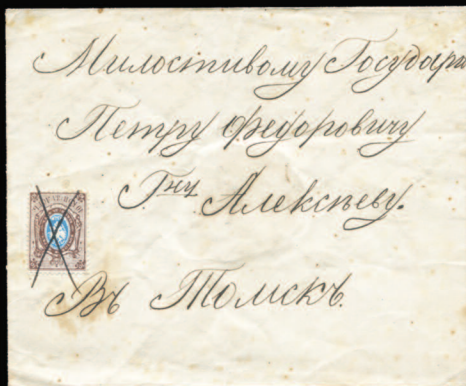 Милостивому Государ
Петру Федоровичу
Гну Алексѣеву.
Въ Томскъ.